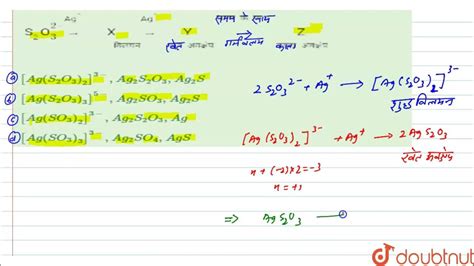 Ag⁺ Ag⁺ समय के साथ
S₂O₃²⁻ → X → Y → Z
विलयन श्वेत अवक्षेप काला अवक्षेप
(a) [Ag(S₂O₃)₂]³⁻, Ag₂S₂O₃, Ag₂S
(b) [Ag(S₂O₃)₃]⁵⁻, Ag₂SO₃, Ag₂S
(c) [Ag(SO₃)₂]³⁻, Ag₂S₂O₃, Ag
(d) [Ag(SO₃)₃]³⁻, Ag₂SO₄, Ag₂S
2S₂O₃²⁻ + Ag⁺ → [Ag(S₂O₃)₂]³⁻
[Ag(S₂O₃)₂]³⁻ + Ag⁺ → 2AgS₂O₃
श्वेत अवक्षेप
x + (-2)×2 = -3
x = +1
⇒ AgS₂O₃
doubtnut